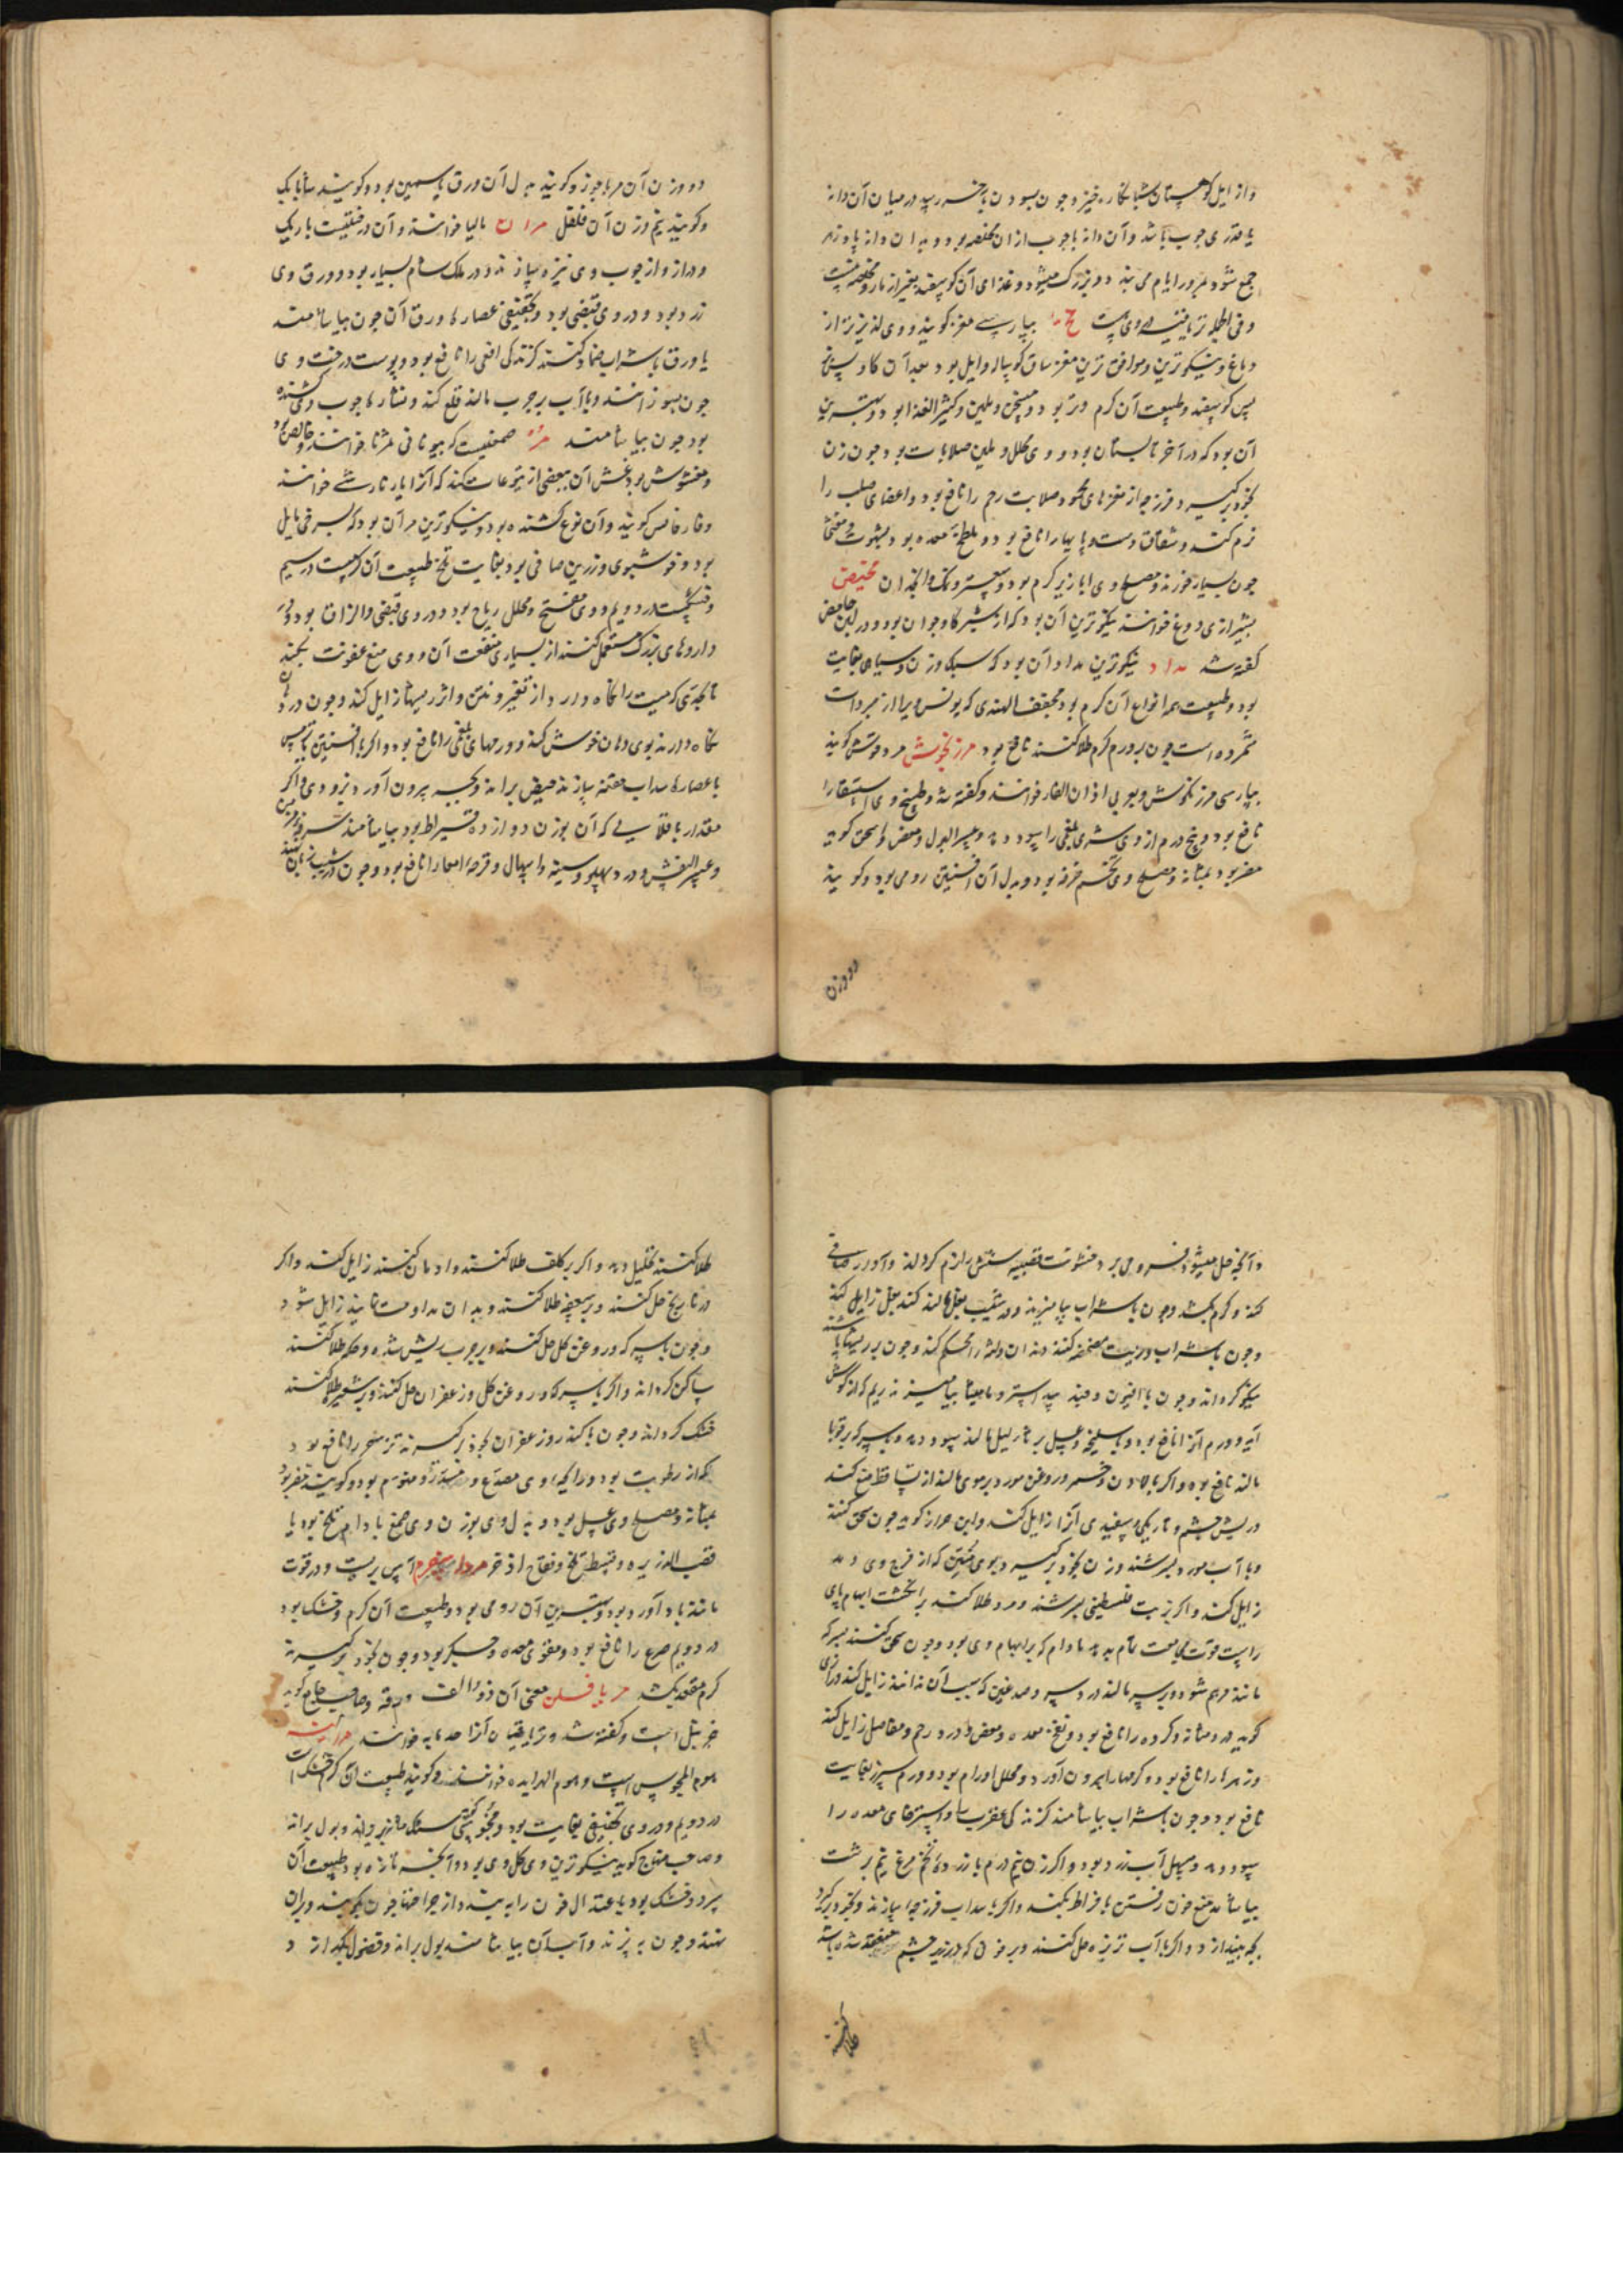 و از ایل کوهستان شبانکاره خیزد و چون بسودن بآخر رسید در میان آن دانه
یا قدری چوب باشد و آن دانه یا چوب از آن بود و بدان دانه پادزهر
جمع شود و بمرور ایام می بندد و بزرگ میشود و غذای آن کوسفند بغیر از مار و
و فی الجمله تریاقیتی در وی هست مخ بپارسی مغز کویند و وی لذیذتر از
دماغ و نیکوترین و موافق ترین مغز ساق کوساله و ایل بود بعد از آن کاو پس بز
پس کوسفند و طبیعت آن کرم و تر بود و مسخن و ملین و کثیر الغذا بود و بهترین
آن بود که در آخر تابستان بود و وی محلل و ملین صلابات بود چون زن
بخود برکیرد و فرزجه از مغزهای محمود صلابت رحم را نافع بود و اعضای صلب را
نرم کند و شقاق دست و پا را نافع بود و ملطخ معده بود و شهوت
چون بسیار خورند و مصلح وی ابازیر کرم بود و سعتر و نمک و انجدان مخیض
بشیرازی دوغ خوانند نیکوترین آن بود که از شیر کاو جوان بود و در لبن حامض
کفته شد مداد نیکوترین مداد آن بود که سبک وزن و سیاه بغایت
بود و طبیعت همه انواع آن کرم بود مجفف الهندی که یونس ویرا از مبردات
شمرده است چون بر ورم کرم طلا کنند نافع بود مرزنجوش مردقوش کویند
بپارسی مرزنکوش و بعربی اذان الفار خوانند و کفته شد و طبیخ وی استسقا را
نافع بود و پنج درم از وی شری بلغمی را سود دهد و عسر البول و مغص و اسحق کوید
مضر بود بمثانه و مصلح وی تخم خرفه بود و بدل آن افسنتین رومی بود و کویند
دو وزن
دو وزن آن مرماحوز و کویند بدل آن ورق یاسمین بود و کویند سابابک
و کویند نیم وزن آن فلفل مران مالیا خوانند و آن درختیست باریک
و دراز و از چوب وی نیزه سازند و در ملک شام بسیار بود و ورق وی
زرد بود و در وی قبضی بود و تجفیفی عصاره ورق آن چون بیاشامند
یا ورق با شراب ضماد کنند کزندکی افعی را نافع بود و پوست درخت وی
چون بسوزانند و با آب بر جرب مالند قلع کند و نشاره چوب وی کشنده
بود چون بیاشامند مر صمغیست که بیونانی خوانند و خالص بود
و مغشوش بود و غش آن ببعضی از یتوعات کنند که آنرا خوانند
و کویند و آن نوع کشنده بود و نیکوترین مر آن بود که بسرخی مایل
بود و خوشبوی و زرین صافی بود بغایت تلخ طبیعت آن کرمست در سیم
و خشکست در دویم و وی مفتح و محلل ریاح بود و در وی قبضی و الزاق بود و در
داروهای بزرک مستعمل کنند از بسیاری منفعت آن و وی منع عفونت بکند
تا بحدی که میت را نکاه دارد از تغیر و نتن و اثر ریشها زایل کند و چون در دهان
نکاه دارند بوی دهان خوش کند و ورمهای بلغمی را نافع بود و اکر با افسنتین یا ترمس
یا عصاره سداب حقنه سازند حیض براند و بچه بیرون آورد بزودی و اکر
مقدار باقلایی که آن بوزن دوازده قیراط بود بیاشامند سرفه مزمن
و عسر النفس و درد پهلو و سینه و اسهال و قرحه امعا را نافع بود و چون در شیب زبان کنند
و آنچه حل میشود فرو می برد خشونت قصبه شش را نرم کرداند و آواز صافی
کند و کرم بکشد و چون با شراب بیامیزند و در شیب بغل مالند کند بغل زایل کند
و چون با شراب و زیت مضمضه کنند دندان و لثه را محکم کند و چون بر ریشها پاشند
نیکو کرداند و چون با افیون و جند بیدستر و مامیثا بیامیزند ریم که از کوش
آید و ورم آنرا نافع بود و با سلیخه و عسل بر ثالیل مالند سود دهد و با سرکه بر قوبا
مالند نافع بود و اکر با لادن و خمر و روغن مورد بر موی مالند از تساقط منع کند
و ریش چشم و تاریکی و سفیدی آنرا زایل کند و ابن کوید چون سحق کنند
و با آب مورد بسرشند و زن بخود برکیرد و بوی منتن که از فرج وی دمد
زایل کند و اکر بزیت فلسطینی بسرشند و مرد طلا کند بر انکشت ابهام پای
راست قوت مجامعت تمام بدهد مادام که بر ابهام وی بود و چون سحق کنند بسرکه
مانند مرهم شود و بر سر مالند درد سر و صدغین که سبب آن ندانند زایل کند و رازی
کوید درد مثانه و کرده را نافع بود و نفخ معده و مغص و درد رحم و مفاصل زایل کند
و زهرها را نافع بود و کرمها را بیرون آورد و محلل اورام بود و ورم سپرز بغایت
نافع بود و چون با شراب بیاشامند کزندکی عقرب را و استرخای معده را
سود دهد و مسهل آب زرد بود و اکر زن نیم درم با زرده تخم مرغ نیم برشت
بیاشامد منع خون رفتن بافراط بکند و اکر با سداب فرزجه سازند و بخود برکیرد
بچه بیندازد و اکر با آب ترتیزه حل کنند و بر خون که در زیر چشم منعقد شده باشد
طلا کنند
طلا کنند تحلیل دهد و اکر بر کلف طلا کنند و ادمان کنند زایل کند و اکر
در نارنج حل کنند و بر سعفه طلا کنند و بدان مداومت نمایند زایل شود
و چون با سرکه و روغن کل حل کنند و بر جرب ریش شده و حکه طلا کنند
ساکن کرداند و اکر با سرکه و روغن کل و زعفران حل کنند و بر طلا کنند
خشک کرداند و چون با کندر و زعفران بخود برکیرند نزف را نافع بود
که از رطوبت بود و رایحه وی مصدع و منوم بود و کویند مضر بود
بمثانه و مصلح وی عسل بود و بدل وی بوزن وی صمغ بادام تلخ بود یا
قصب الذریره و قسط تلخ و فقاح اذخر مرداسفرم آس بریست و در قوت
مانند باد آورد بود و بهترین آن رومی بود و طبیعت آن کرم و خشک بود
در دویم صرع را نافع بود و مقوی معده و جکر بود و چون بخود برکیرند
کرم مقعد بکشد مریافلن معنی آن ذو الف ورقه و صاحب جامع کوید
حزنبل است و کفته شد و تریاقیان آنرا خوانند مرانیه
هوم المجوس است و هوم خوانند و کویند طبیعت آن کرم و خشکست
در دویم و در وی تجفیفی بغایت بود و سنک مثانه بریزاند و بول براند
و صاحب منهاج کوید نیکوترین وی کل وی بود و آنکه تازه بود طبیعت آن
سرد و خشک بود باعتدال خون را ببندد از جراحتها چون بکوبند و بر آن
نهند و چون بپزند و آب آن بیاشامند بول براند و فضول بکدازد و